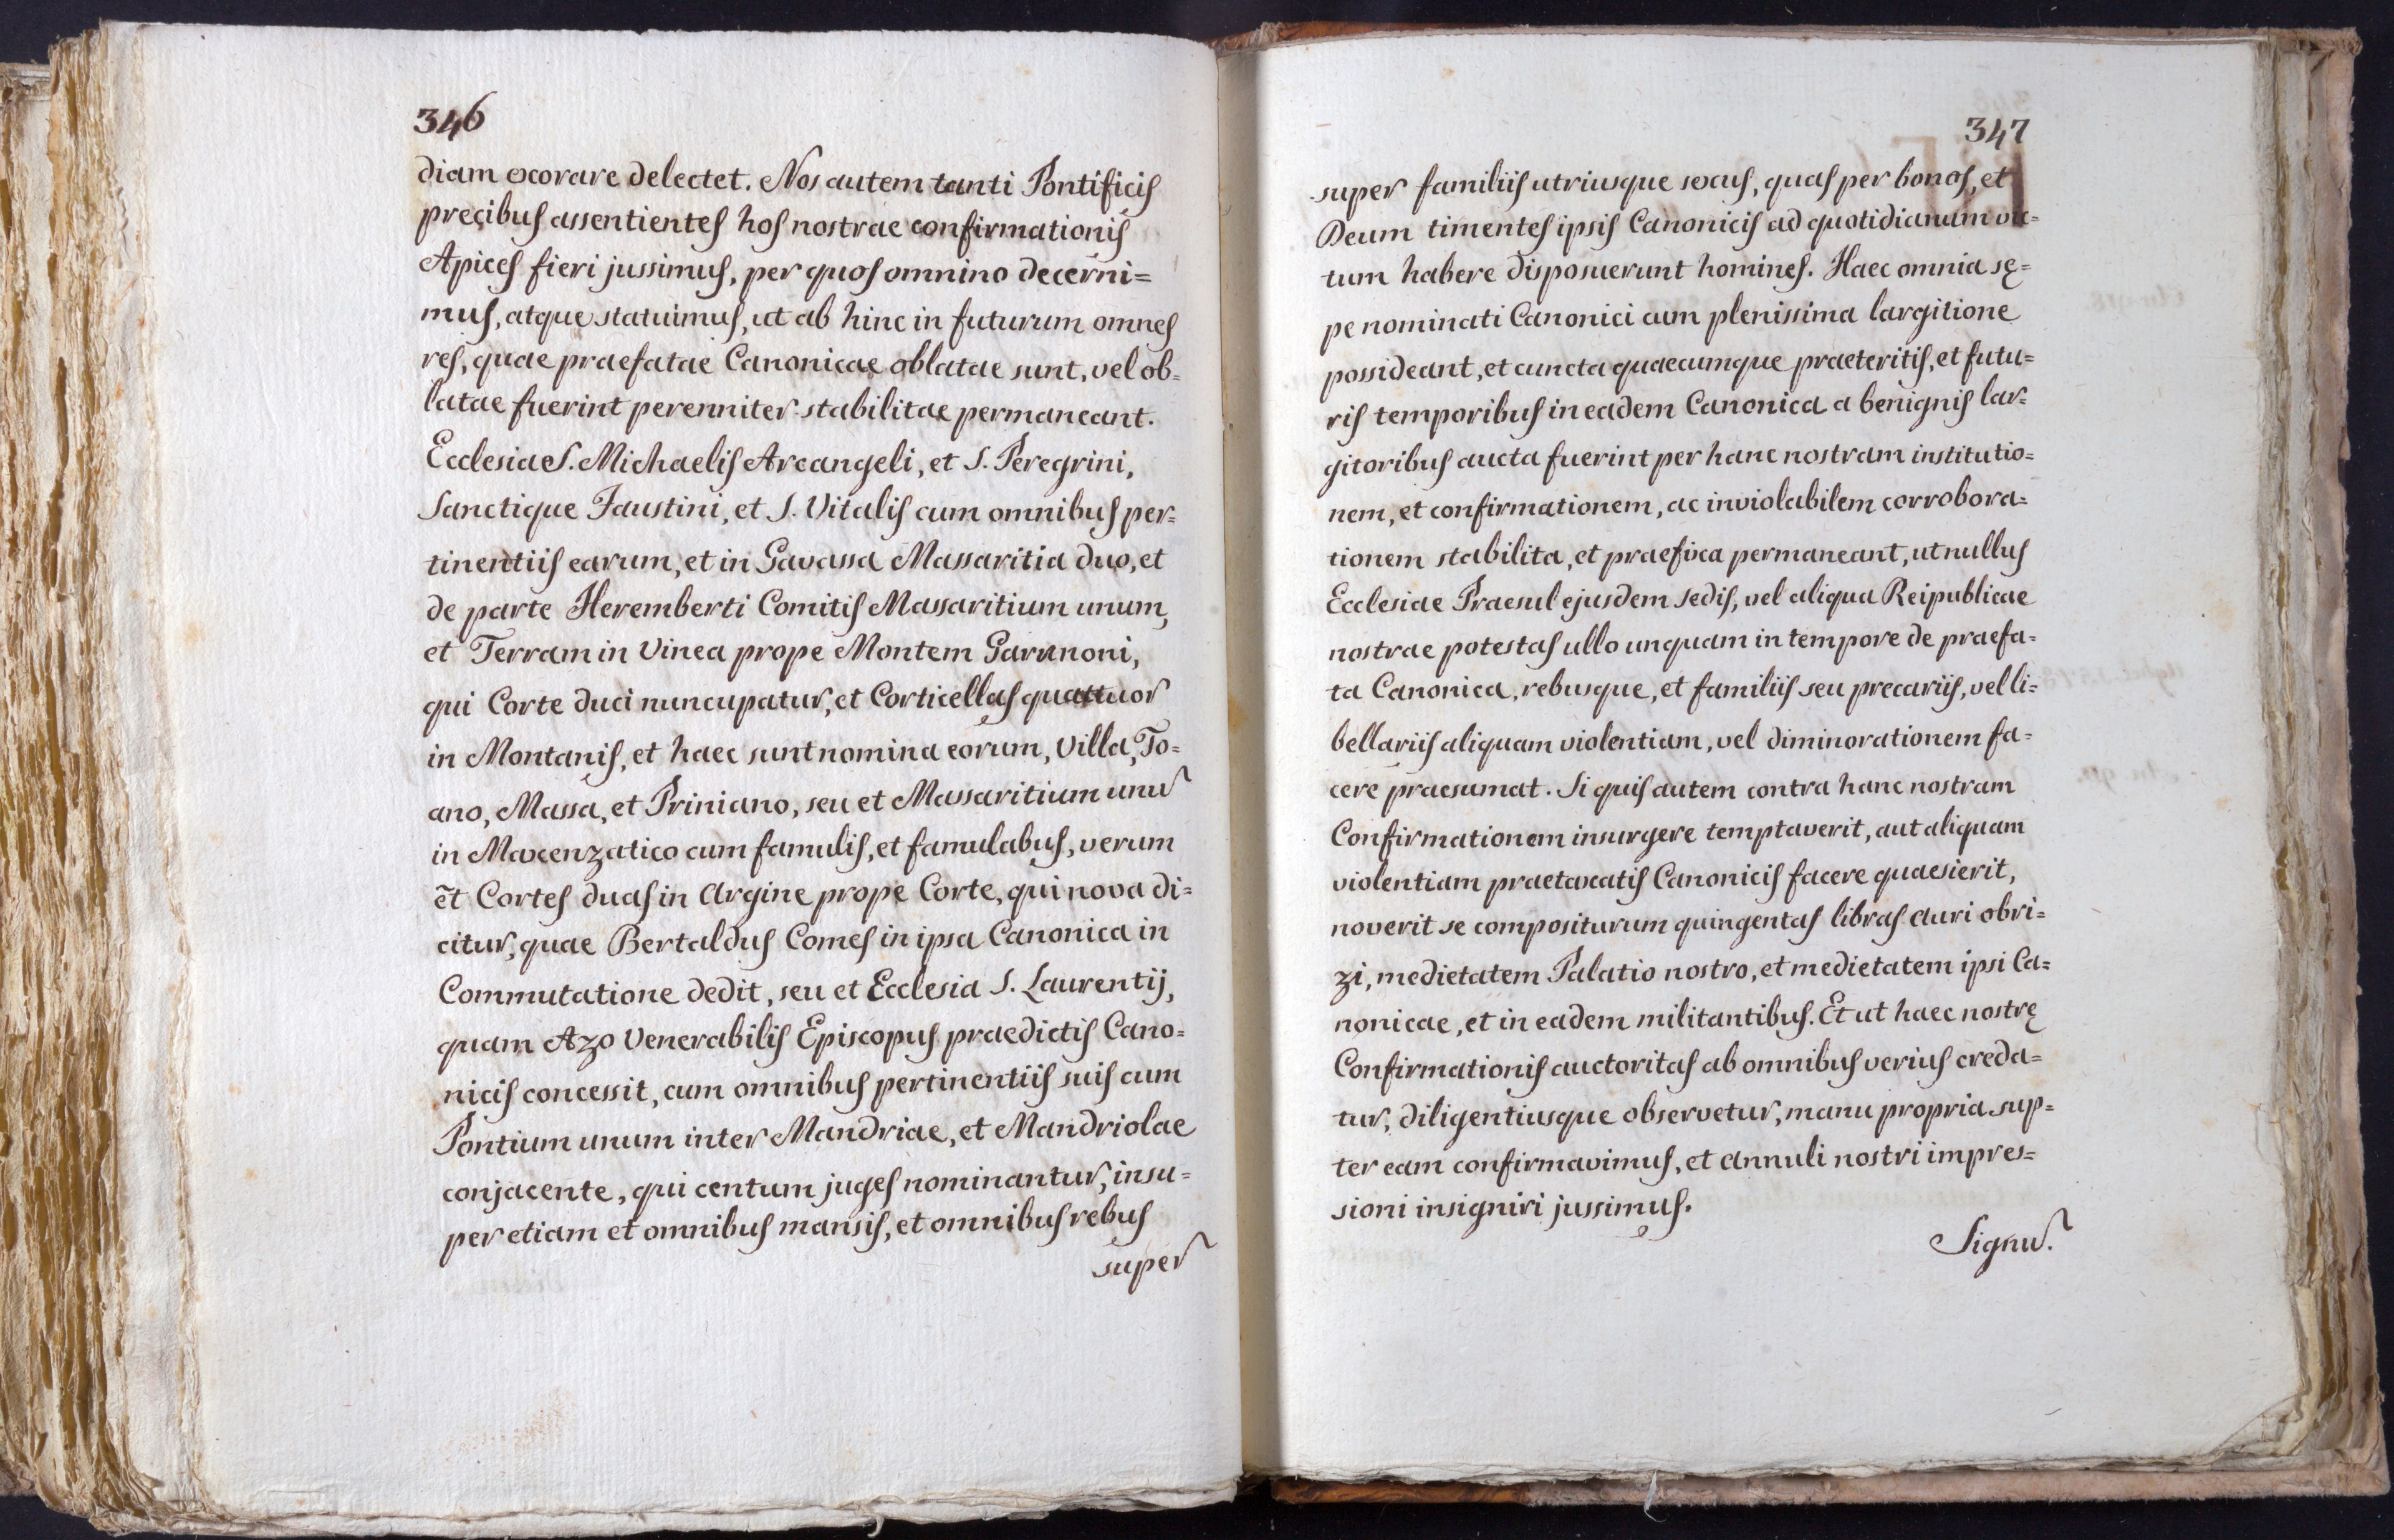 346
diam exorare delectet. Nos autem tanti Pontificis
precibus assentientes hos nostrae confirmationis
Apices fieri jussimus, per quos omnino decerni=
mus, atque statuimus, ut ab hinc in futurum omnes
res, quae praefatae Canonicae oblatae sunt, vel ob=
latae fuerint perenniter stabilitae permaneant.
Ecclesia S. Michaelis Arcangeli, et S. Peregrini,
Sanctique Faustini, et S. Vitalis cum omnibus per=
tinentiis earum, et in Gavassa Massaritia duo, et
de parte Heremberti Comitis Massaritium unum,
et Terram in Vinea prope Montem Garunoni,
qui Corte duci nuncupatur, et Corticellas quattuor
in Montanis, et haec sunt nomina eorum, Villa, To=
ano, Massa, et Priniano, seu et Massaritium unu
in Maxenzatico cum famulis, et famulabus, verum
et̃ Cortes duas in Argine prope Corte, qui nova di=
citur, quae Bertaldus Comes in ipsa Canonica in
Commutatione dedit, seu et Ecclesia S. Laurentij,
quam Azo Venerabilis Episcopus praedictis Cano=
nicis concessit, cum omnibus pertinentiis suis cum
Pontium unum inter Mandriae, et Mandriolae
conjacente, qui centum juges nominantur, insu=
per etiam et omnibus mansis, et omnibus rebus
super
347
super familiis utriusque sexus, quas per bonos, et
Deum timentes ipsis Canonicis ad quotidianum vic=
tum habere disposuerunt homines. Haec omnia sę=
pe nominati Canonici cum plenissima largitione
possideant, et cuncta quaecumque praeteritis, et futu=
ris temporibus in eadem Canonica a benignis lar=
gitoribus aucta fuerint per hanc nostram institutio=
nem, et confirmationem, ac inviolabilem corrobora=
tionem stabilita, et praefixa permaneant, ut nullus
Ecclesiae Praesul ejusdem sedis, vel aliqua Reipublicae
nostrae potestas ullo unquam in tempore de praefa=
ta Canonica, rebusque, et familiis seu precariis, vel li=
bellariis aliquam violentiam, vel diminorationem fa=
cere praesumat. Si quis autem contra hanc nostram
Confirmationem insurgere temptaverit, aut aliquam
violentiam praetaxatis Canonicis facere quaesierit,
noverit se compositurum quingentas libras auri obri=
zi, medietatem Palatio nostro, et medietatem ipsi Ca=
nonicae, et in eadem militantibus. Et ut haec nostrę
Confirmationis auctoritas ab omnibus verius creda=
tur, diligentiusque observetur, manu propria sup=
ter eam confirmavimus, et annuli nostri impres=
sioni insigniri jussimus.
Signu.